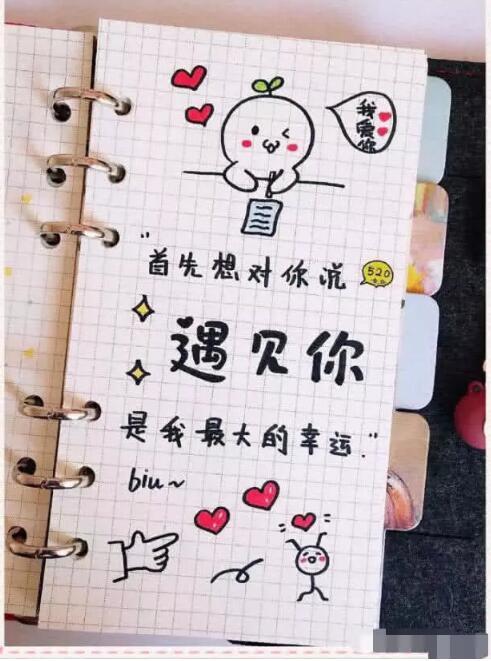 我爱你
“首先想对你说
520
遇见你
是我最大的幸运.”
biu~